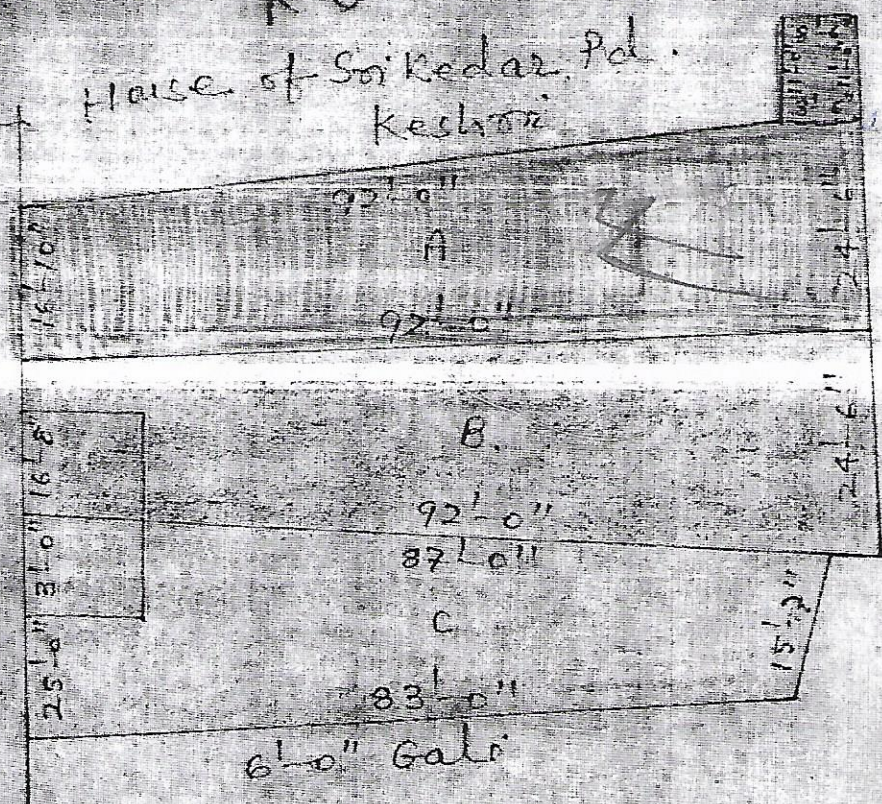 House of Sri Kedar Pd.
Keshori
92'-0"
A
24'-6"
92'-0"
B.
16'-8"
24'-6"
92'-0"
87'-0"
3'-0"
C
15'-2"
25'-0"
83'-0"
6'-0" Gali